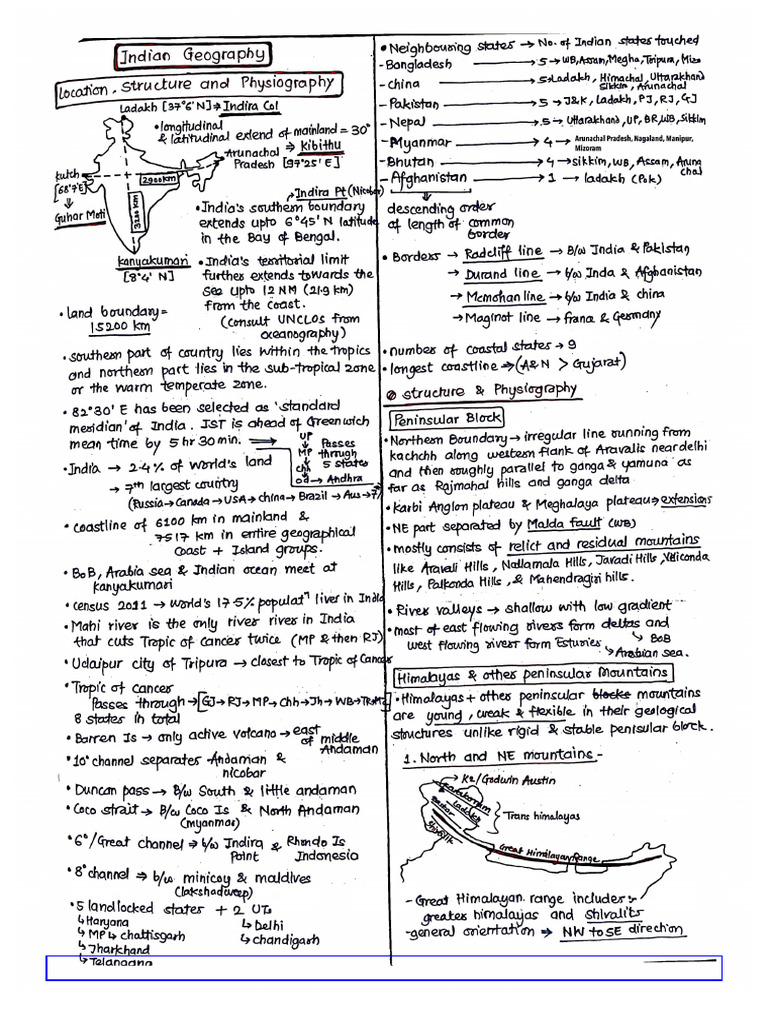 Indian Geography
Location, Structure and Physiography
Ladakh [37°6'N] → Indira Col
• longitudinal
& latitudinal extend of mainland = 30°
Arunachal ⇒ Kibithu
Pradesh [97°25'E]
kutch
[68°7'E]
Guhar Moti
2900km
3200 km
kanyakumari
[8°4' N]
Indira Pt (Nicobar)
• India's southern boundary
extends upto 6°45' N latitude
in the Bay of Bengal.
• India's territorial limit
further extends towards the
sea upto 12 NM (21.9 km)
from the coast.
(Consult UNCLOS from
oceanography)
• land boundary =
15200 km
• southern part of country lies within the tropics
and northern part lies in the sub-tropical zone
or the warm temperate zone.
• 82°30' E has been selected as 'standard
meridian' of India. IST is ahead of Greenwich
mean time by 5 hr 30 min.
UP
MP
chh
od → Andhra
Passes
through
5 states
• India → 2.4% of world's land
→ 7th largest country
(Russia→Canada→USA→china→Brazil→Aus→7)
• coastline of 6100 km in mainland &
7517 km in entire geographical
Coast + Island groups.
• BoB, Arabia sea & Indian ocean meet at
kanyakumari
• census 2011 → world's 17.5% populatⁿ lives in India
• Mahi river is the only river river in India
that cuts Tropic of cancer twice (MP & then RJ)
• Udaipur city of Tripura → closest to Tropic of Cancer
• Tropic of cancer
passes through → [GJ→RJ→MP→Chh→Jh→WB→TR→MZ]
8 states in total
• Barren Is → only active volcano → east
of middle
Andaman
• 10° channel separates Andaman &
nicobar
• Duncan pass → B/w South & little andaman
• Coco strait → B/w Coco Is & North Andaman
(myanmar)
• 6°/Great channel → b/w Indira & Rhondo Is
Point Indonesia
• 8° channel → b/w minicoy & maldives
(lakshadweep)
• 5 landlocked states + 2 UTs
↳ Haryana ↳ Delhi
↳ MP ↳ chattisgarh ↳ chandigarh
↳ Jharkhand
↳ Telangana
• Neighbouring states → No. of Indian states touched
- Bangladesh → 5 → WB, Assam, Megha, Tripura, Mizo
- china → 5 → Ladakh, Himachal, Uttarakhand
Sikkim, Arunachal
- Pakistan → 5 → J&K, Ladakh, PJ, RJ, GJ
- Nepal → 5 → Uttarakhand, UP, BR, WB, Sikkim
- Myanmar → 4 → Arunachal Pradesh, Nagaland, Manipur,
Mizoram
- Bhutan → 4 → sikkim, WB, Assam, Arun
chal
- Afghanistan → 1 → ladakh (Pok)
descending order
of length of common
border
• Borders → Radcliff line → B/w India & Pakistan
→ Durand line → b/w Inda & Afghanistan
→ Mcmohan line → b/w India & china
→ Maginot line → frana & Germany
• number of coastal states → 9
• longest coastline → (A&N > Gujarat)
structure & Physiography
Peninsular Block
• Northern Boundary → irregular line running from
kachchh along western flank of Aravalis near delhi
and then roughly parallel to ganga & yamuna as
far as Rajmahal hills and ganga delta
• Karbi Anglon plateau & Meghalaya plateau → extensions
• NE part separated by Malda fault (WB)
• mostly consists of relict and residual mountains
like Aravali Hills, Nallamala Hills, Javadi Hills, Veliconda
Hills, Palkonda Hills, & Mahendragiri hills.
• River valleys → shallow with low gradient
• most of east flowing rivers form deltas and
west flowing river form Esturies
BoB
Arabian sea.
Himalayas & other peninsular Mountains
• Himalayas + other peninsular blocks mountains
are young, weak & flexible in their geological
structures unlike rigid & stable penisular block.
1. North and NE mountains -
K2/Godwin Austin
Karakoram
Ladakh
Zaskar
Shivalik
Trans himalayas
Great Himalayan Range
- Great Himalayan range includes :-
greater himalayas and Shivaliks
- general orientation ⇒ NW to SE direction